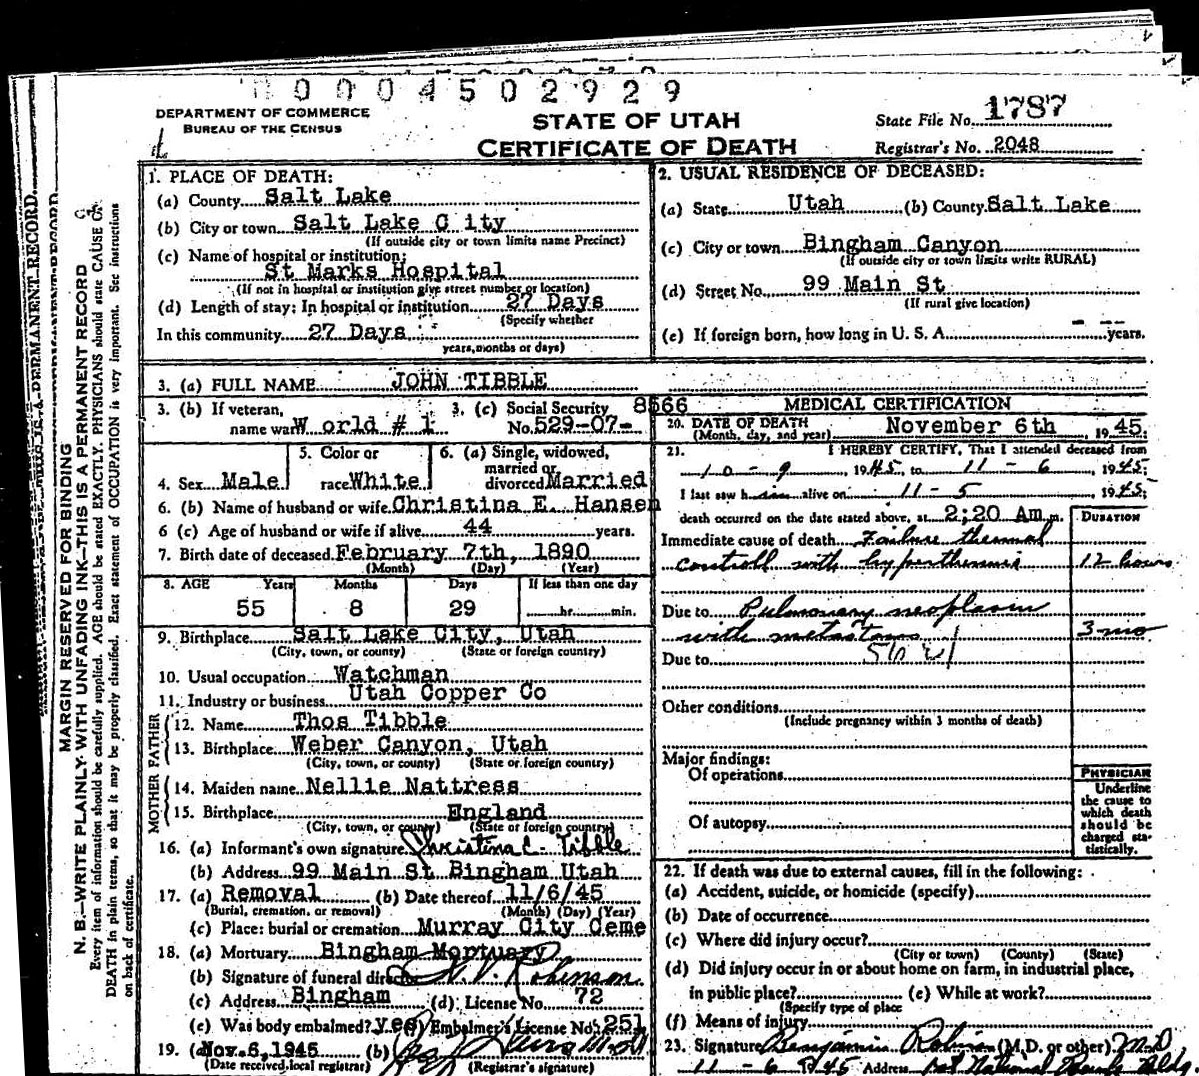 0 0 0 4 5 0 2 9 2 9
DEPARTMENT OF COMMERCE
BUREAU OF THE CENSUS
STATE OF UTAH
CERTIFICATE OF DEATH
State File No. 1787
Registrar's No. 2048
MARGIN RESERVED FOR BINDING
N. B.—WRITE PLAINLY WITH UNFADING INK—THIS IS A PERMANENT RECORD
Every item of information should be carefully supplied. AGE should be stated EXACTLY. PHYSICIANS should state CAUSE OF
DEATH in plain terms, so that it may be properly classified. Exact statement of OCCUPATION is very important. See instructions
on back of certificate.
1. PLACE OF DEATH:
(a) County Salt Lake
(b) City or town Salt Lake C ity
(If outside city or town limits name Precinct)
(c) Name of hospital or institution:
St Marks Hospital
(If not in hospital or institution give street number or location)
(d) Length of stay: In hospital or institution 27 Days
(Specify whether
In this community 27 Days
years, months or days)
2. USUAL RESIDENCE OF DECEASED:
(a) State Utah (b) County Salt Lake
(c) City or town Bingham Canyon
(If outside city or town limits write RURAL)
(d) Street No. 99 Main St
(If rural give location)
(e) If foreign born, how long in U. S. A. - -- years.
3. (a) FULL NAME JOHN TIBBLE
3. (b) If veteran,
name war W orld # 1
3. (c) Social Security 8566
No. 529-07-
4. Sex Male
5. Color or
race White
6. (a) Single, widowed,
married or
divorced Married
6. (b) Name of husband or wife Christina E. Hansen
6 (c) Age of husband or wife if alive 44 years.
7. Birth date of deceased February 7th, 1890
(Month) (Day) (Year)
8. AGE Years Months Days If less than one day
55 8 29 hr. min.
9. Birthplace Salt Lake City, Utah
(City, town, or county) (State or foreign country)
10. Usual occupation Watchman
11. Industry or business Utah Copper Co
FATHER
12. Name Thos Tibble
13. Birthplace Weber Canyon, Utah
(City, town, or county) (State or foreign country)
MOTHER
14. Maiden name Nellie Nattress
15. Birthplace England
(City, town, or county) (State or foreign country)
16. (a) Informant's own signature Christina E. Tibble
(b) Address 99 Main St Bingham Utah
17. (a) Removal (b) Date thereof 11/6/45
(Burial, cremation, or removal) (Month) (Day) (Year)
(c) Place: burial or cremation Murray City Ceme
18. (a) Mortuary Bingham Mortuary
(b) Signature of funeral director Robinson
(c) Address Bingham (d) License No. 72
(e) Was body embalmed? yes Embalmer's License No. 251
19. (a) Nov. 6, 1945 (b)
(Date received local registrar) (Registrar's signature)
MEDICAL CERTIFICATION
20. DATE OF DEATH November 6th, 1945
(Month, day, and year)
21. I HEREBY CERTIFY, That I attended deceased from
10 - 9 1945 to 11 - 6, 1945;
I last saw him alive on 11 - 5, 1945;
death occurred on the date stated above, at 2;20 Am m.
DURATION
Immediate cause of death Failure thermal
controll with hyperthermia 12 hours
Due to Pulmonary neoplasm
with metastasis 3 mo
Due to
Other conditions
(Include pregnancy within 3 months of death)
Major findings:
Of operations
Of autopsy
PHYSICIAN
Underline
the cause to
which death
should be
charged sta-
tistically.
22. If death was due to external causes, fill in the following:
(a) Accident, suicide, or homicide (specify)
(b) Date of occurrence
(c) Where did injury occur?
(City or town) (County) (State)
(d) Did injury occur in or about home on farm, in industrial place,
in public place? (e) While at work?
(Specify type of place
(f) Means of injury
23. Signature Benjamin (M.D. or other) M.D
11 - 6 1945 Address National Bank Bldg.